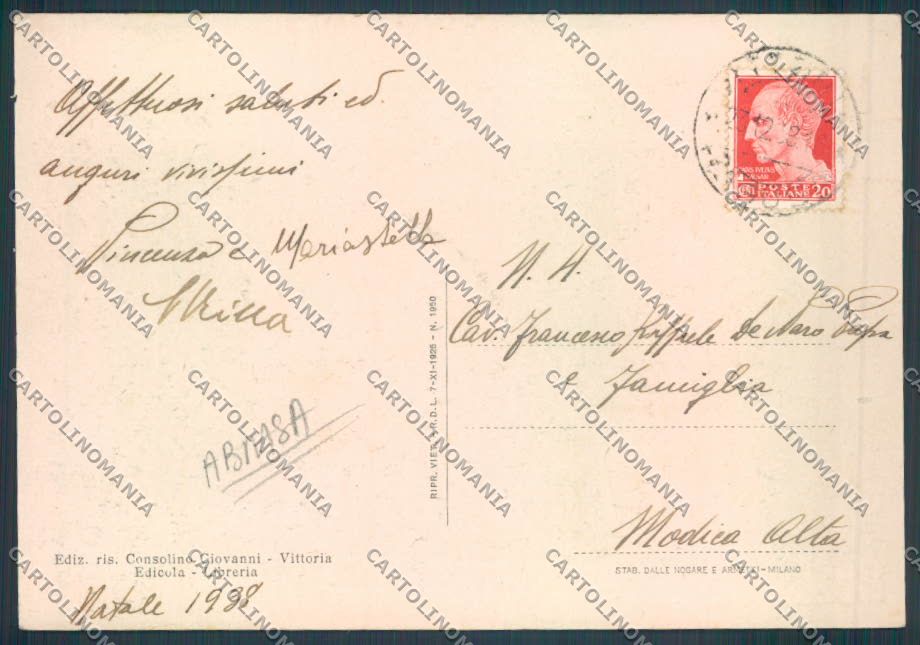 Affettuosi saluti ed
auguri vivissimi
Vincenzo e Mariastella
N. H.
Cav. Francesco De Naro Papa
e Famiglia
Modica Alta
ABMASA
RIPR. VIET. - R.D.L. 7-XI-1925 - N. 1950
Ediz. ris. Consolino Giovanni - Vittoria
Edicola - Libreria
Natale 1938
STAB. DALLE NOGARE E ARMETTI - MILANO
POSTE
ITALIANE 20
CARTOLINOMANIA